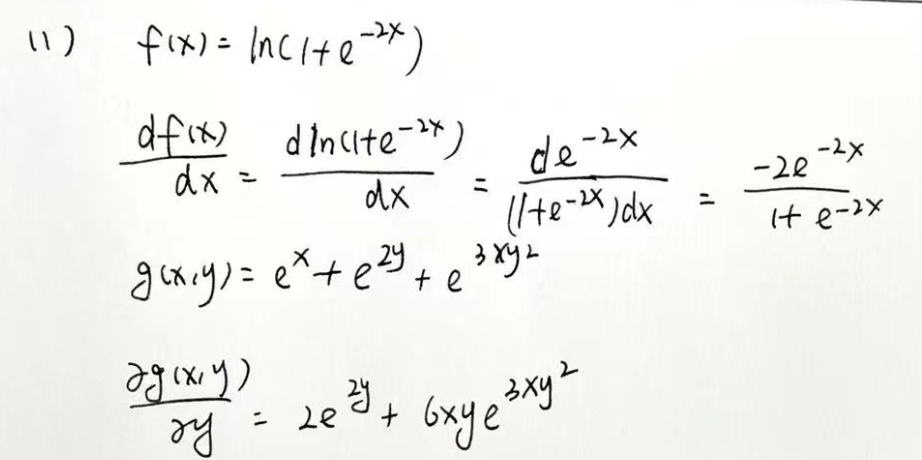 (1) f(x) = ln(1+e^{-2x})
\frac{df(x)}{dx} = \frac{d ln(1+e^{-2x})}{dx} = \frac{de^{-2x}}{(1+e^{-2x})dx} = \frac{-2e^{-2x}}{1+e^{-2x}}
g(x,y) = e^{x} + e^{2y} + e^{3xy^{2}}
\frac{∂g(x,y)}{∂y} = 2e^{2y} + 6xye^{3xy^{2}}